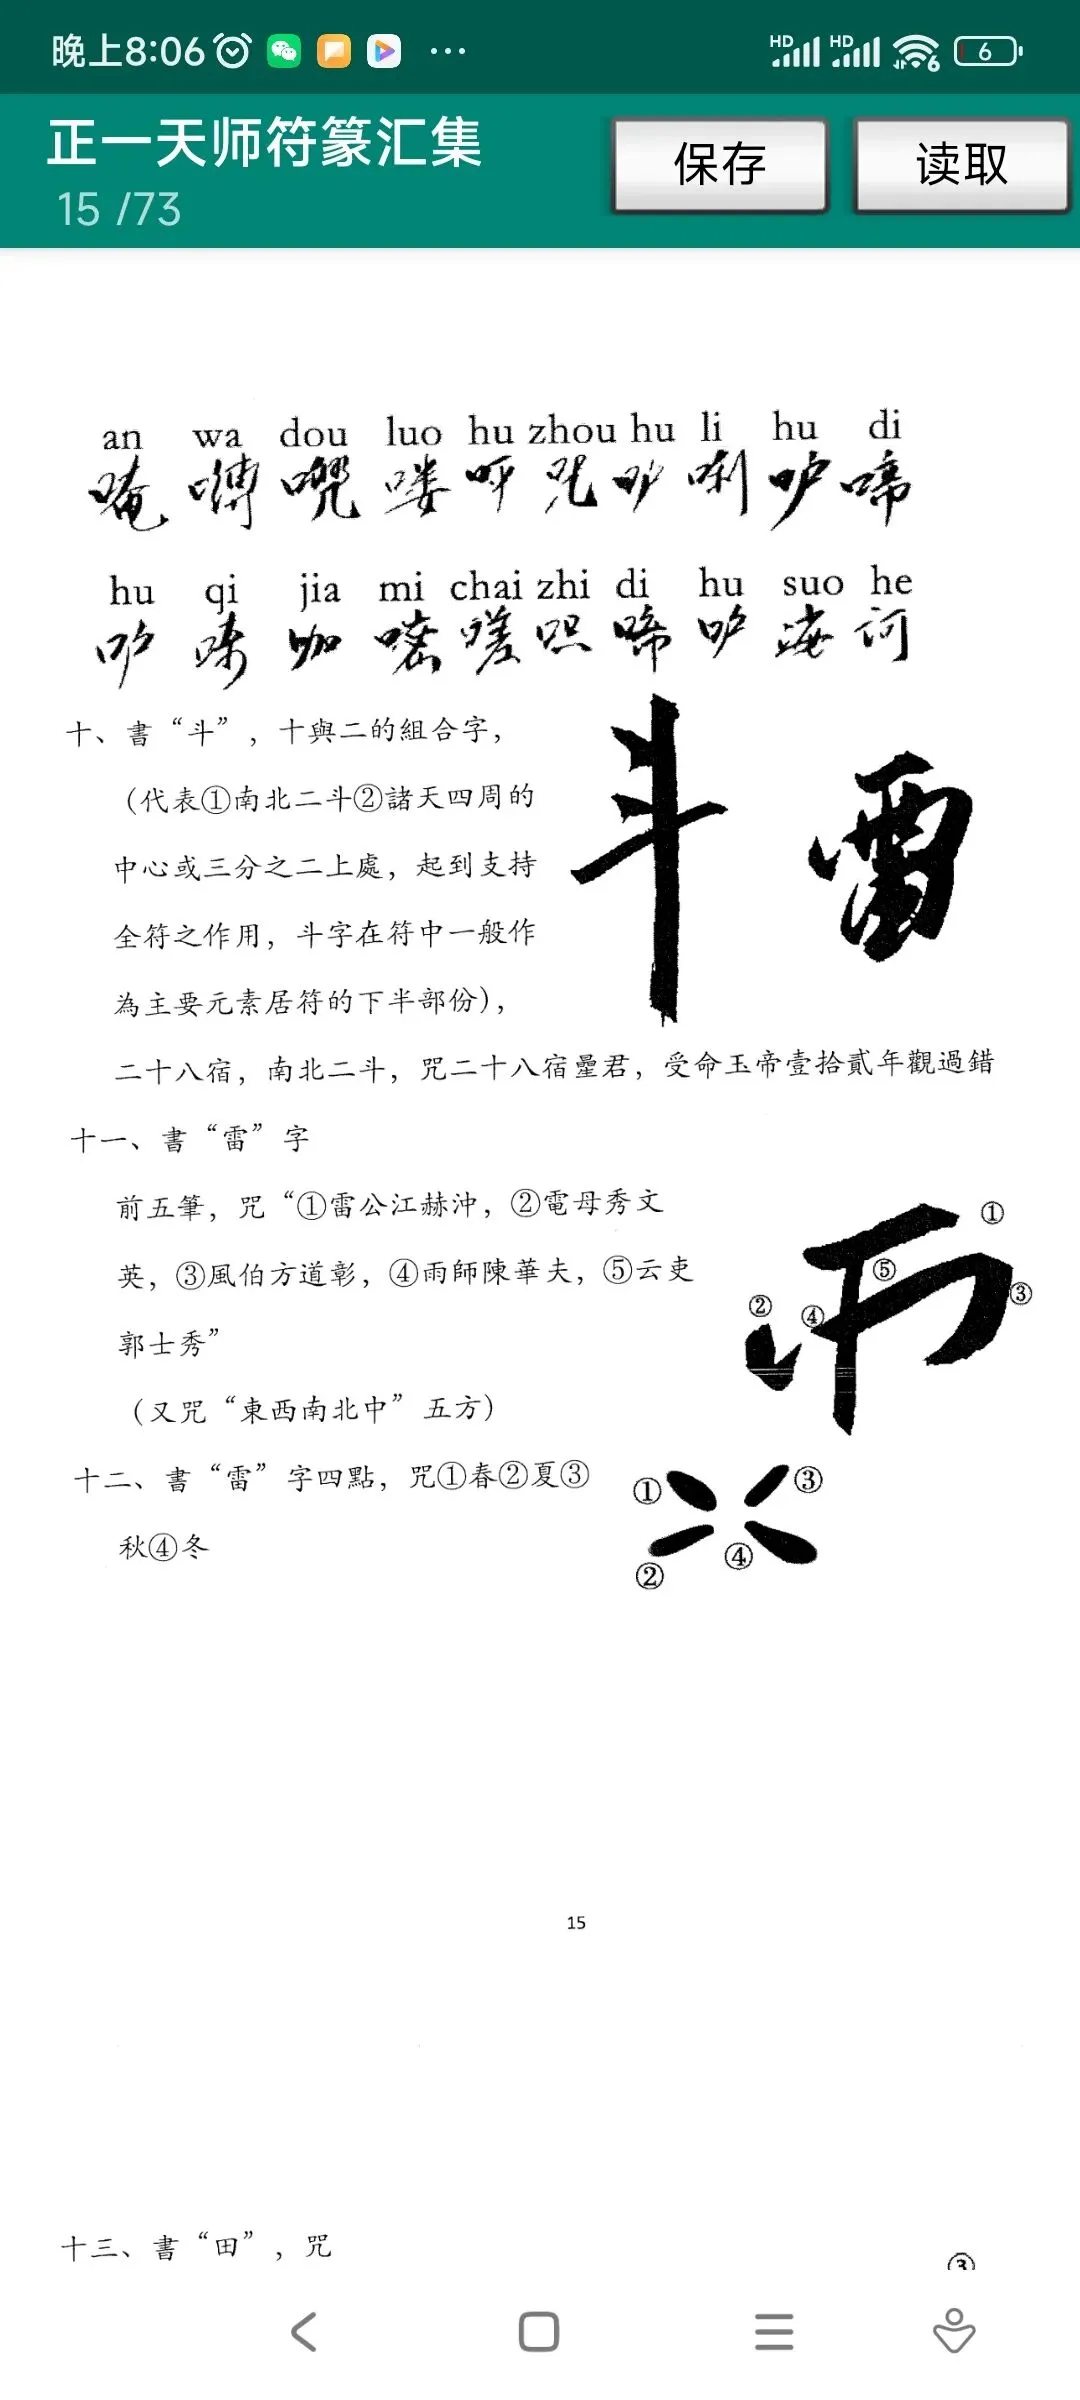 晚上8:06 ··· HD HD 6 6
正一天师符篆汇集
保存 读取
15 /73
an wa dou luo hu zhou hu li hu di
hu qi jia mi chai zhi di hu suo he
斗 雷
十、書“斗”，十與二的組合字，
（代表①南北二斗②諸天四周的
中心或三分之二上處，起到支持
全符之作用，斗字在符中一般作
為主要元素居符的下半部份），
二十八宿，南北二斗，咒二十八宿星君，受命玉帝壹拾貳年觀過錯
十一、書“雷”字
前五筆，咒“①雷公江赫沖，②電母秀文
英，③風伯方道彰，④雨師陳華夫，⑤云吏
郭士秀”
（又咒“東西南北中”五方）
① ② ③ ④ ⑤
十二、書“雷”字四點，咒①春②夏③
秋④冬
① ② ③ ④
15
十三、書“田”，咒
③